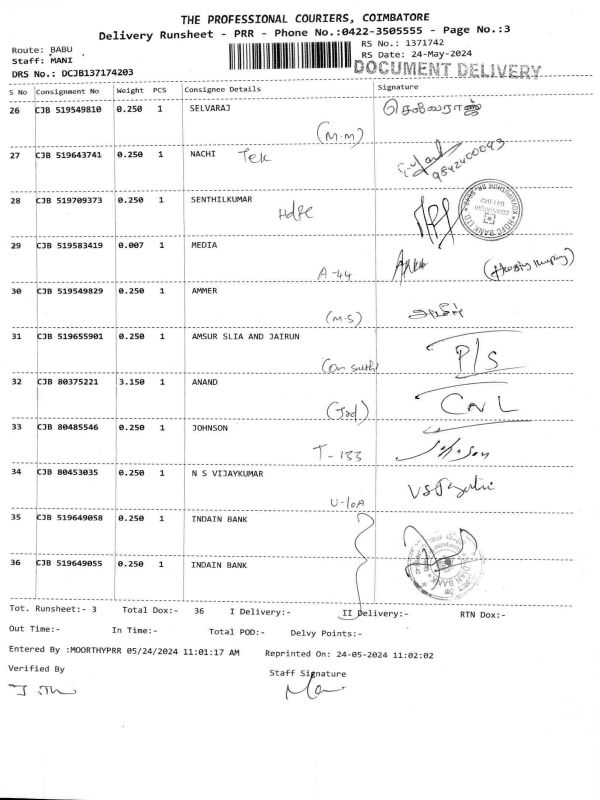 THE PROFESSIONAL COURIERS, COIMBATORE
Delivery Runsheet - PRR - Phone No.:0422-3505555 - Page No.:3
Route: BABU
RS No.: 1371742
Staff: MANI
RS Date: 24-May-2024
DRS No.: DCJB137174203
DOCUMENT DELIVERY
S No Consignment No Weight PCS Consignee Details Signature
26 CJB 519549810 0.250 1 SELVARAJ செல்வராஜ்
(M.M)
27 CJB 519643741 0.250 1 NACHI Tek
9842400093
28 CJB 519709373 0.250 1 SENTHILKUMAR
HDFC BANK LTD
29 CJB 519583419 0.007 1 MEDIA
A-44
30 CJB 519549829 0.250 1 AMMER
(M.S) அமீர்
31 CJB 519655901 0.250 1 AMSUR SLIA AND JAIRUN
P/S
32 CJB 80375221 3.150 1 ANAND
CNL
33 CJB 80485546 0.250 1 JOHNSON
T-133 Johnson
34 CJB 80453035 0.250 1 N S VIJAYKUMAR
U-10A
35 CJB 519649058 0.250 1 INDAIN BANK
36 CJB 519649055 0.250 1 INDAIN BANK
Tot. Runsheet:- 3 Total Dox:- 36 I Delivery:- II Delivery:- RTN Dox:-
Out Time:- In Time:- Total POD:- Delvy Points:-
Entered By :MOORTHYPRR 05/24/2024 11:01:17 AM Reprinted On: 24-05-2024 11:02:02
Verified By Staff Signature